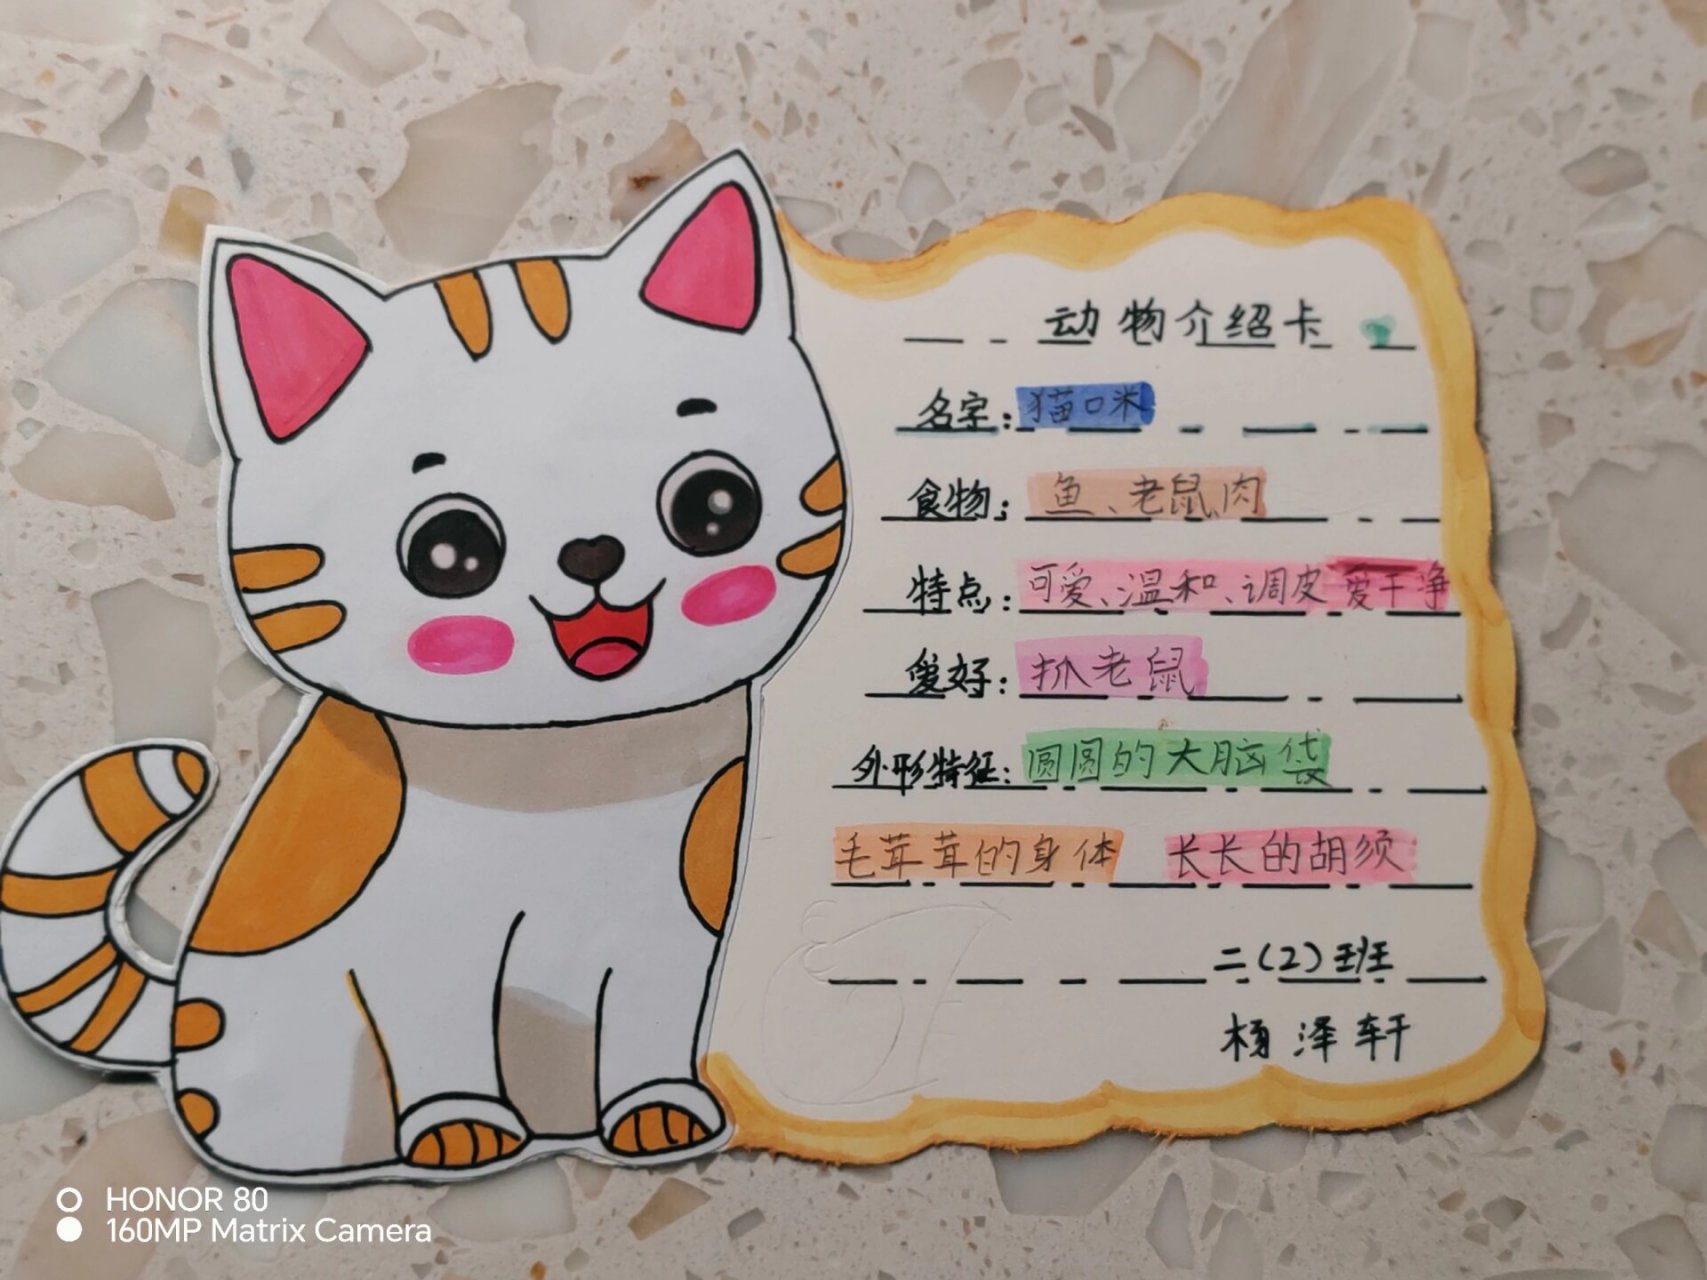 动物介绍卡
名字：猫咪
食物：鱼、老鼠、肉
特点：可爱、温和、调皮 爱干净
爱好：抓老鼠
外形特征：圆圆的大脑袋
毛茸茸的身体 长长的胡须
二（2）班
杨泽轩
HONOR 80
160MP Matrix Camera